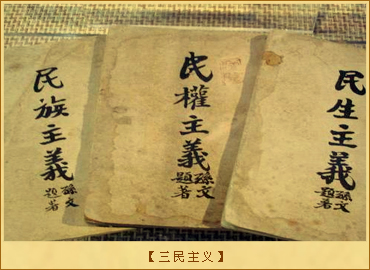 民族主義
孫文
題著
民權主義
孫文
題著
民生主義
孫文
題著
【三民主义】